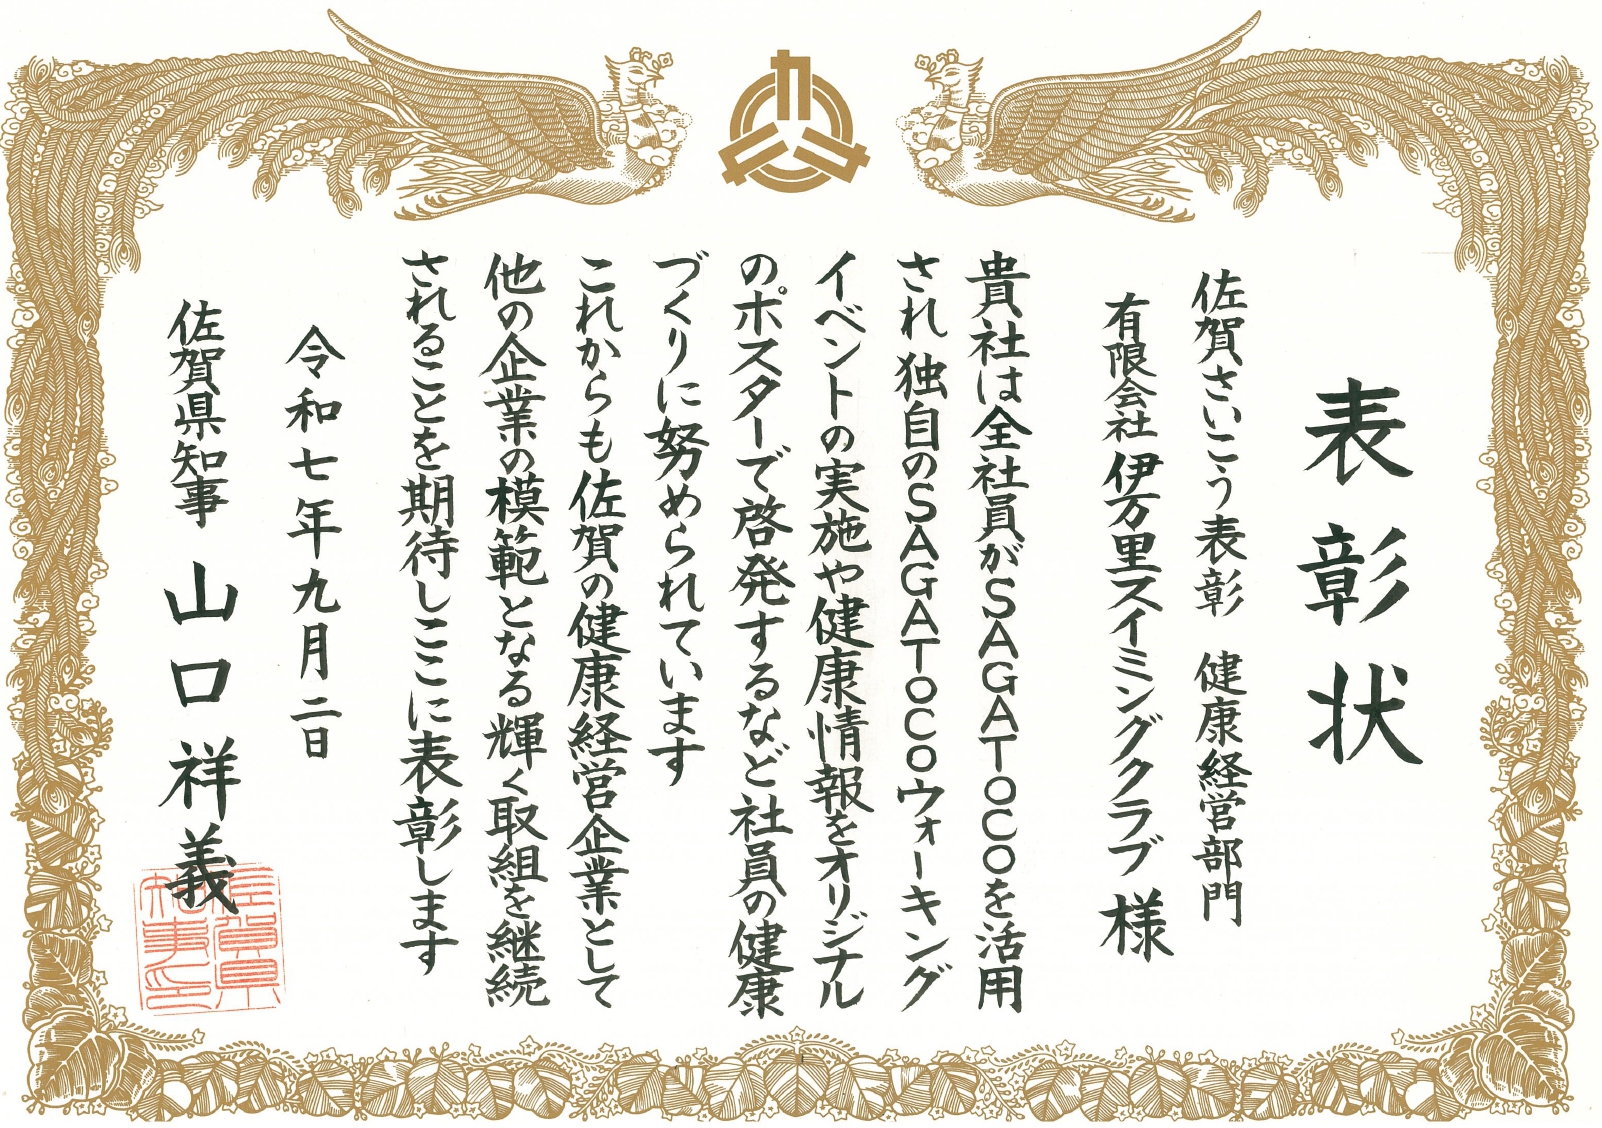 表彰状
佐賀さいこう表彰 健康経営部門
有限会社 伊万里スイミングクラブ 様
貴社は全社員がSAGATOCOを活用
され 独自のSAGATOCOウォーキング
イベントの実施や健康情報をオリジナル
のポスターで啓発するなど社員の健康
づくりに努められています
これからも佐賀の健康経営企業として
他の企業の模範となる輝く取組を継続
されることを期待しここに表彰します
令和七年九月二日
佐賀県知事 山口祥義
佐賀県
知事印